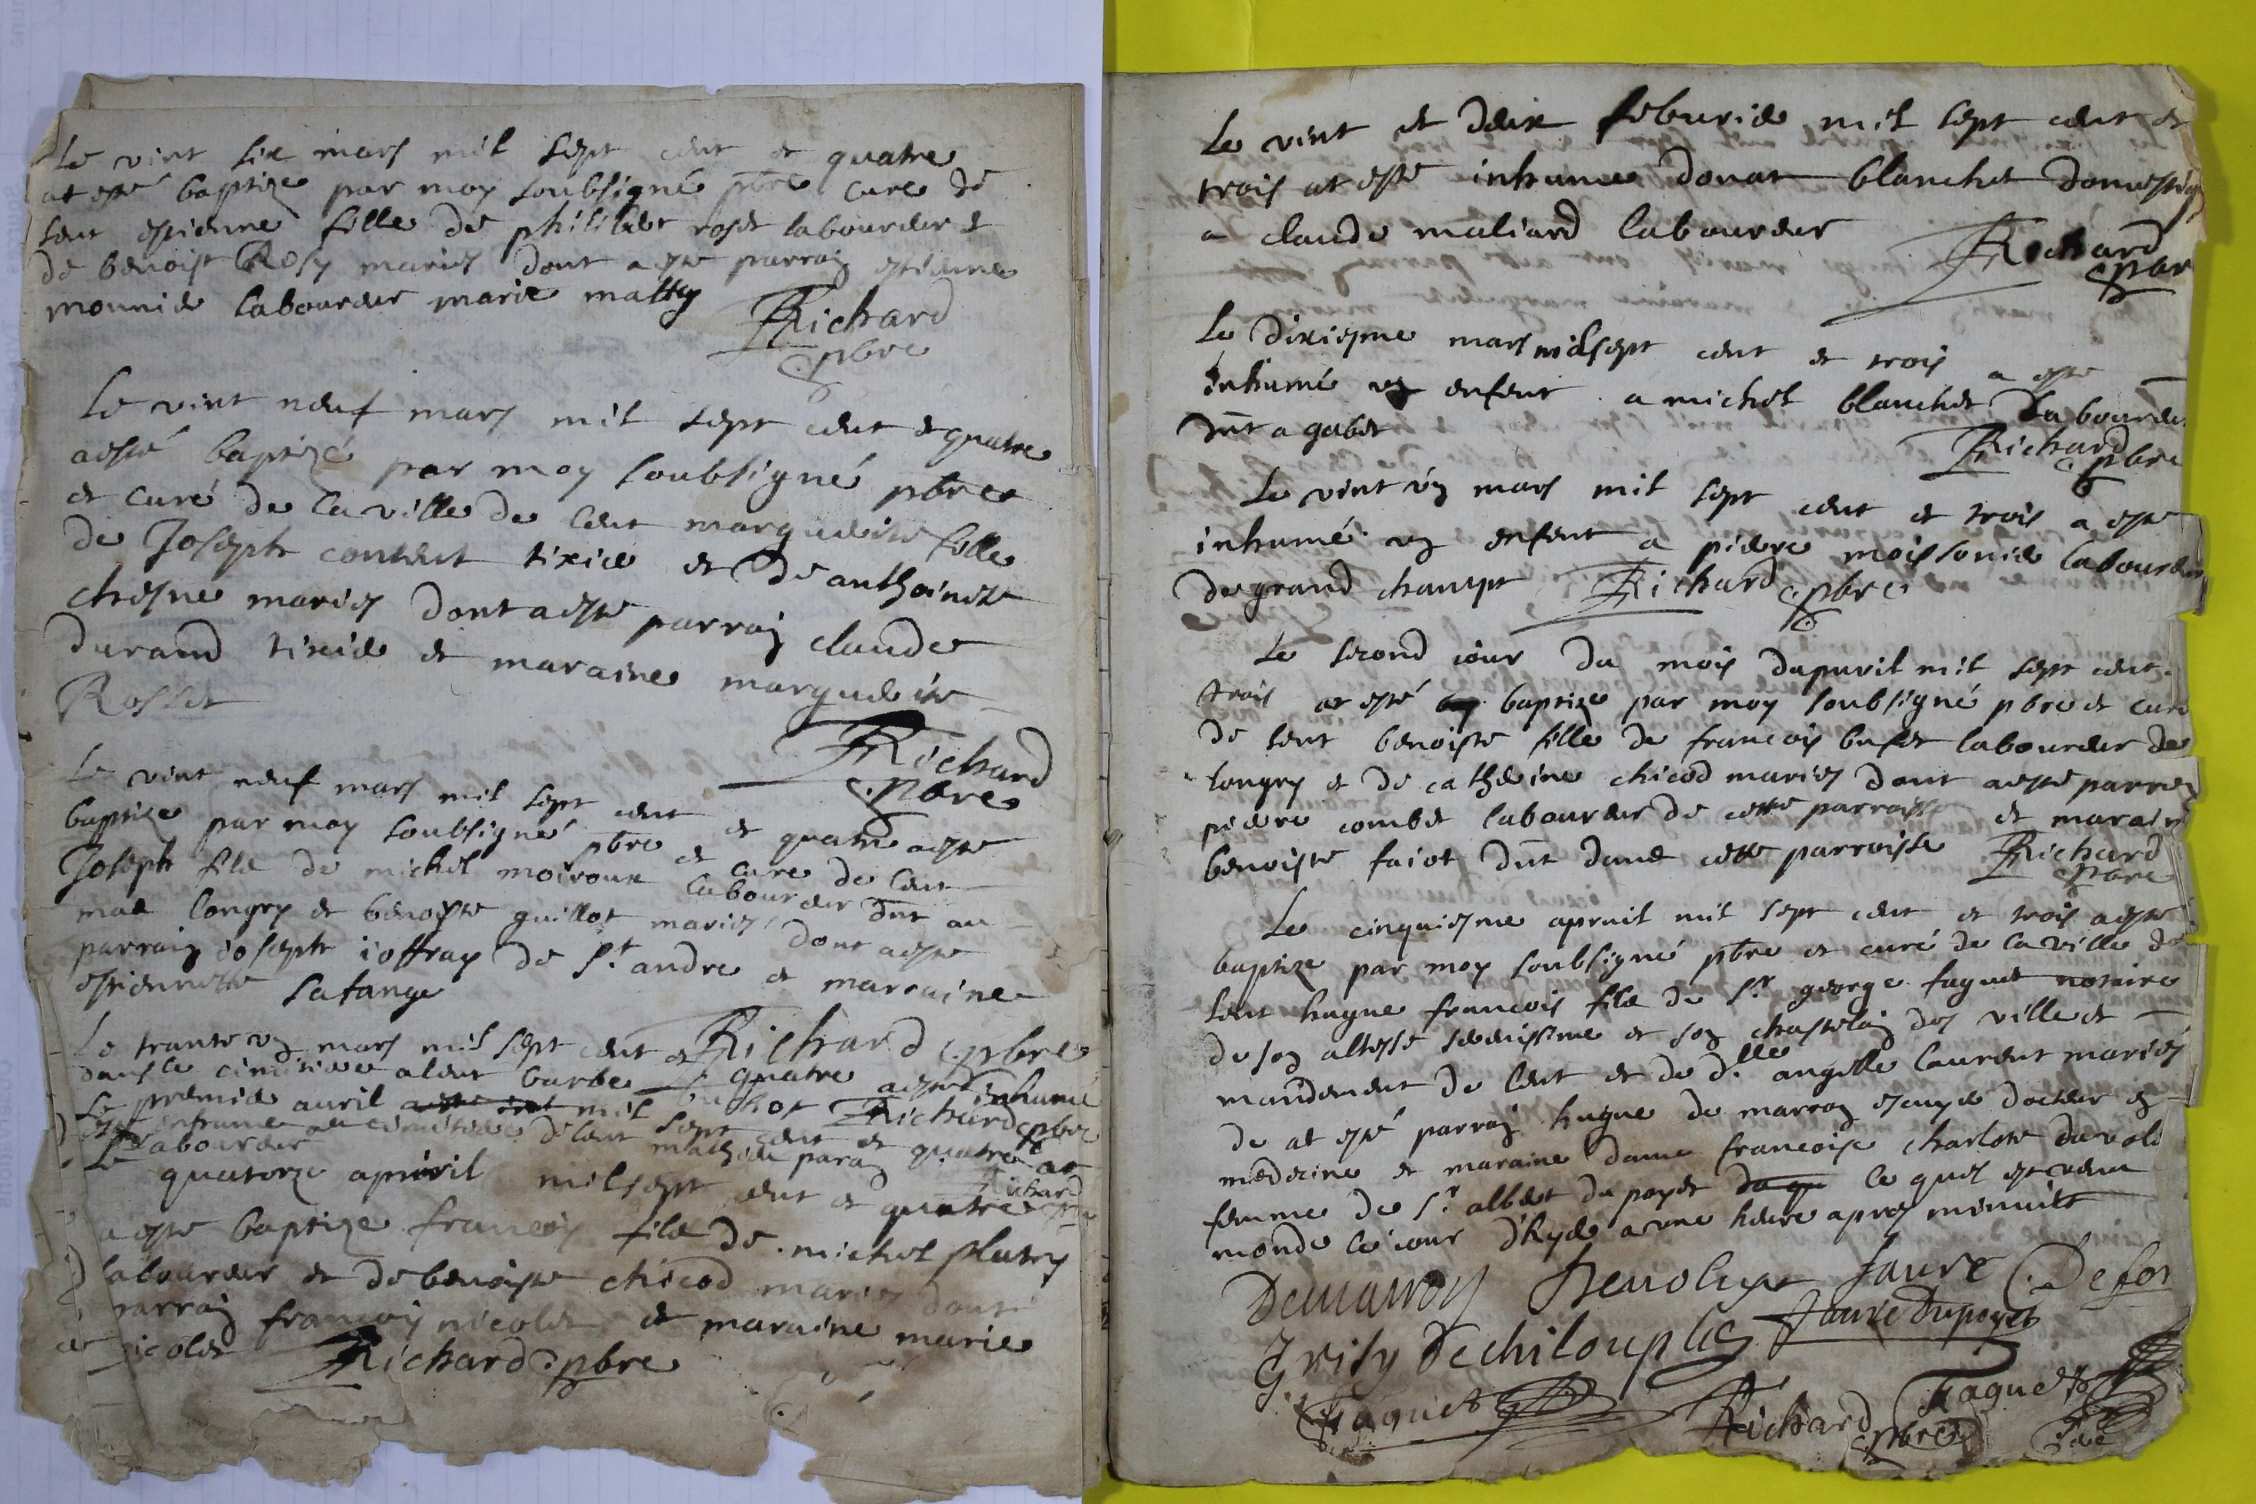 Le vint six mars mil sept cent et quatre
at esté baptize par moy soubsigné pbre cure de
lent estienne fille de philibert roset laboureur et
de benoist Rosy mariés dont a esté parrain estienne
mounier laboureur marie mattey
Richard
pbre
Le vint neuf mars mil sept cent et quatre
a esté baptizé par moy soubsigné pbre
et curé de la ville de lent marguerite fille
de Joseph content tixier et de anthoinete
chesne mariés dont a esté parrain claude
durand tixier et maraine marguerite
Rosset
Richard
pbre
Le vint neuf mars mil sept cent et quatre a esté
baptize par moy soubsigné pbre et cure de lent
Joseph fils de michel moiroux laboureur dmt au
mas longry et benoiste guillot mariés dont a esté
parrain joseph ioffray de St andre et marraine
estiennette lafange
Richard pbre
Le trante un mars mil sept cent et quatre a esté inhumé
dans le cimitiere a lent barbe buchot Richard pbre
Le premier auril mil sept cent et quatre at
esté inhumé au cimitiere de lent mathieu
laboureur Richard
Le quatorze apuril mil sept cent et quatre
a esté baptize francois fils de michel plutry
laboureur et de benoiste chicod mariés dont
parrain françois nicolet et maraine marie
nicolet Richard pbre
Le vint et deux feburier mil sept cent et
trois at esté inhumé donat blanchet domestique
a claude maliard laboureur
Richard
pbre
Le dixiesme mars mil sept cent et trois a esté
inhumé un enfent a michel blanchet laboureur
dmt a gabet
Richard
pbre
Le vint un mars mil sept cent et trois a esté
inhumé un enfent a pierre moissonier laboureur
de grand champt Richard pbre
Le second iour du mois dapuril mil sept cent
trois at esté baptize par moy soubsigné pbre et curé
de lent benoiste fille de francois bufet laboureur de
longry et de catherine chicod mariés dont a esté parrein
pierre combet laboureur de cette parroisse et maraine
benoiste faiot dmt dans cette parroisse Richard
pbre
Le cinquiesme apruil mil sept cent et trois a esté
baptize par moy soubsigné pbre et curé de la ville de
lent hugue francois fils de Sr george faguet notaire
de son altesse serenissime et son chastelain des ville et
mandement de lent et de dlle angelle laurent mariés
de at esté parrain hugue de marron escuyer docteur en
medecine et maraine dame francoise charlote
femme de Sr albert du poyet le quel est venu
monde le iour d'hyer a une heure apres minuict
Demarron faure
faure Dupoyet
Faguet
Richard
pbre
Faguet